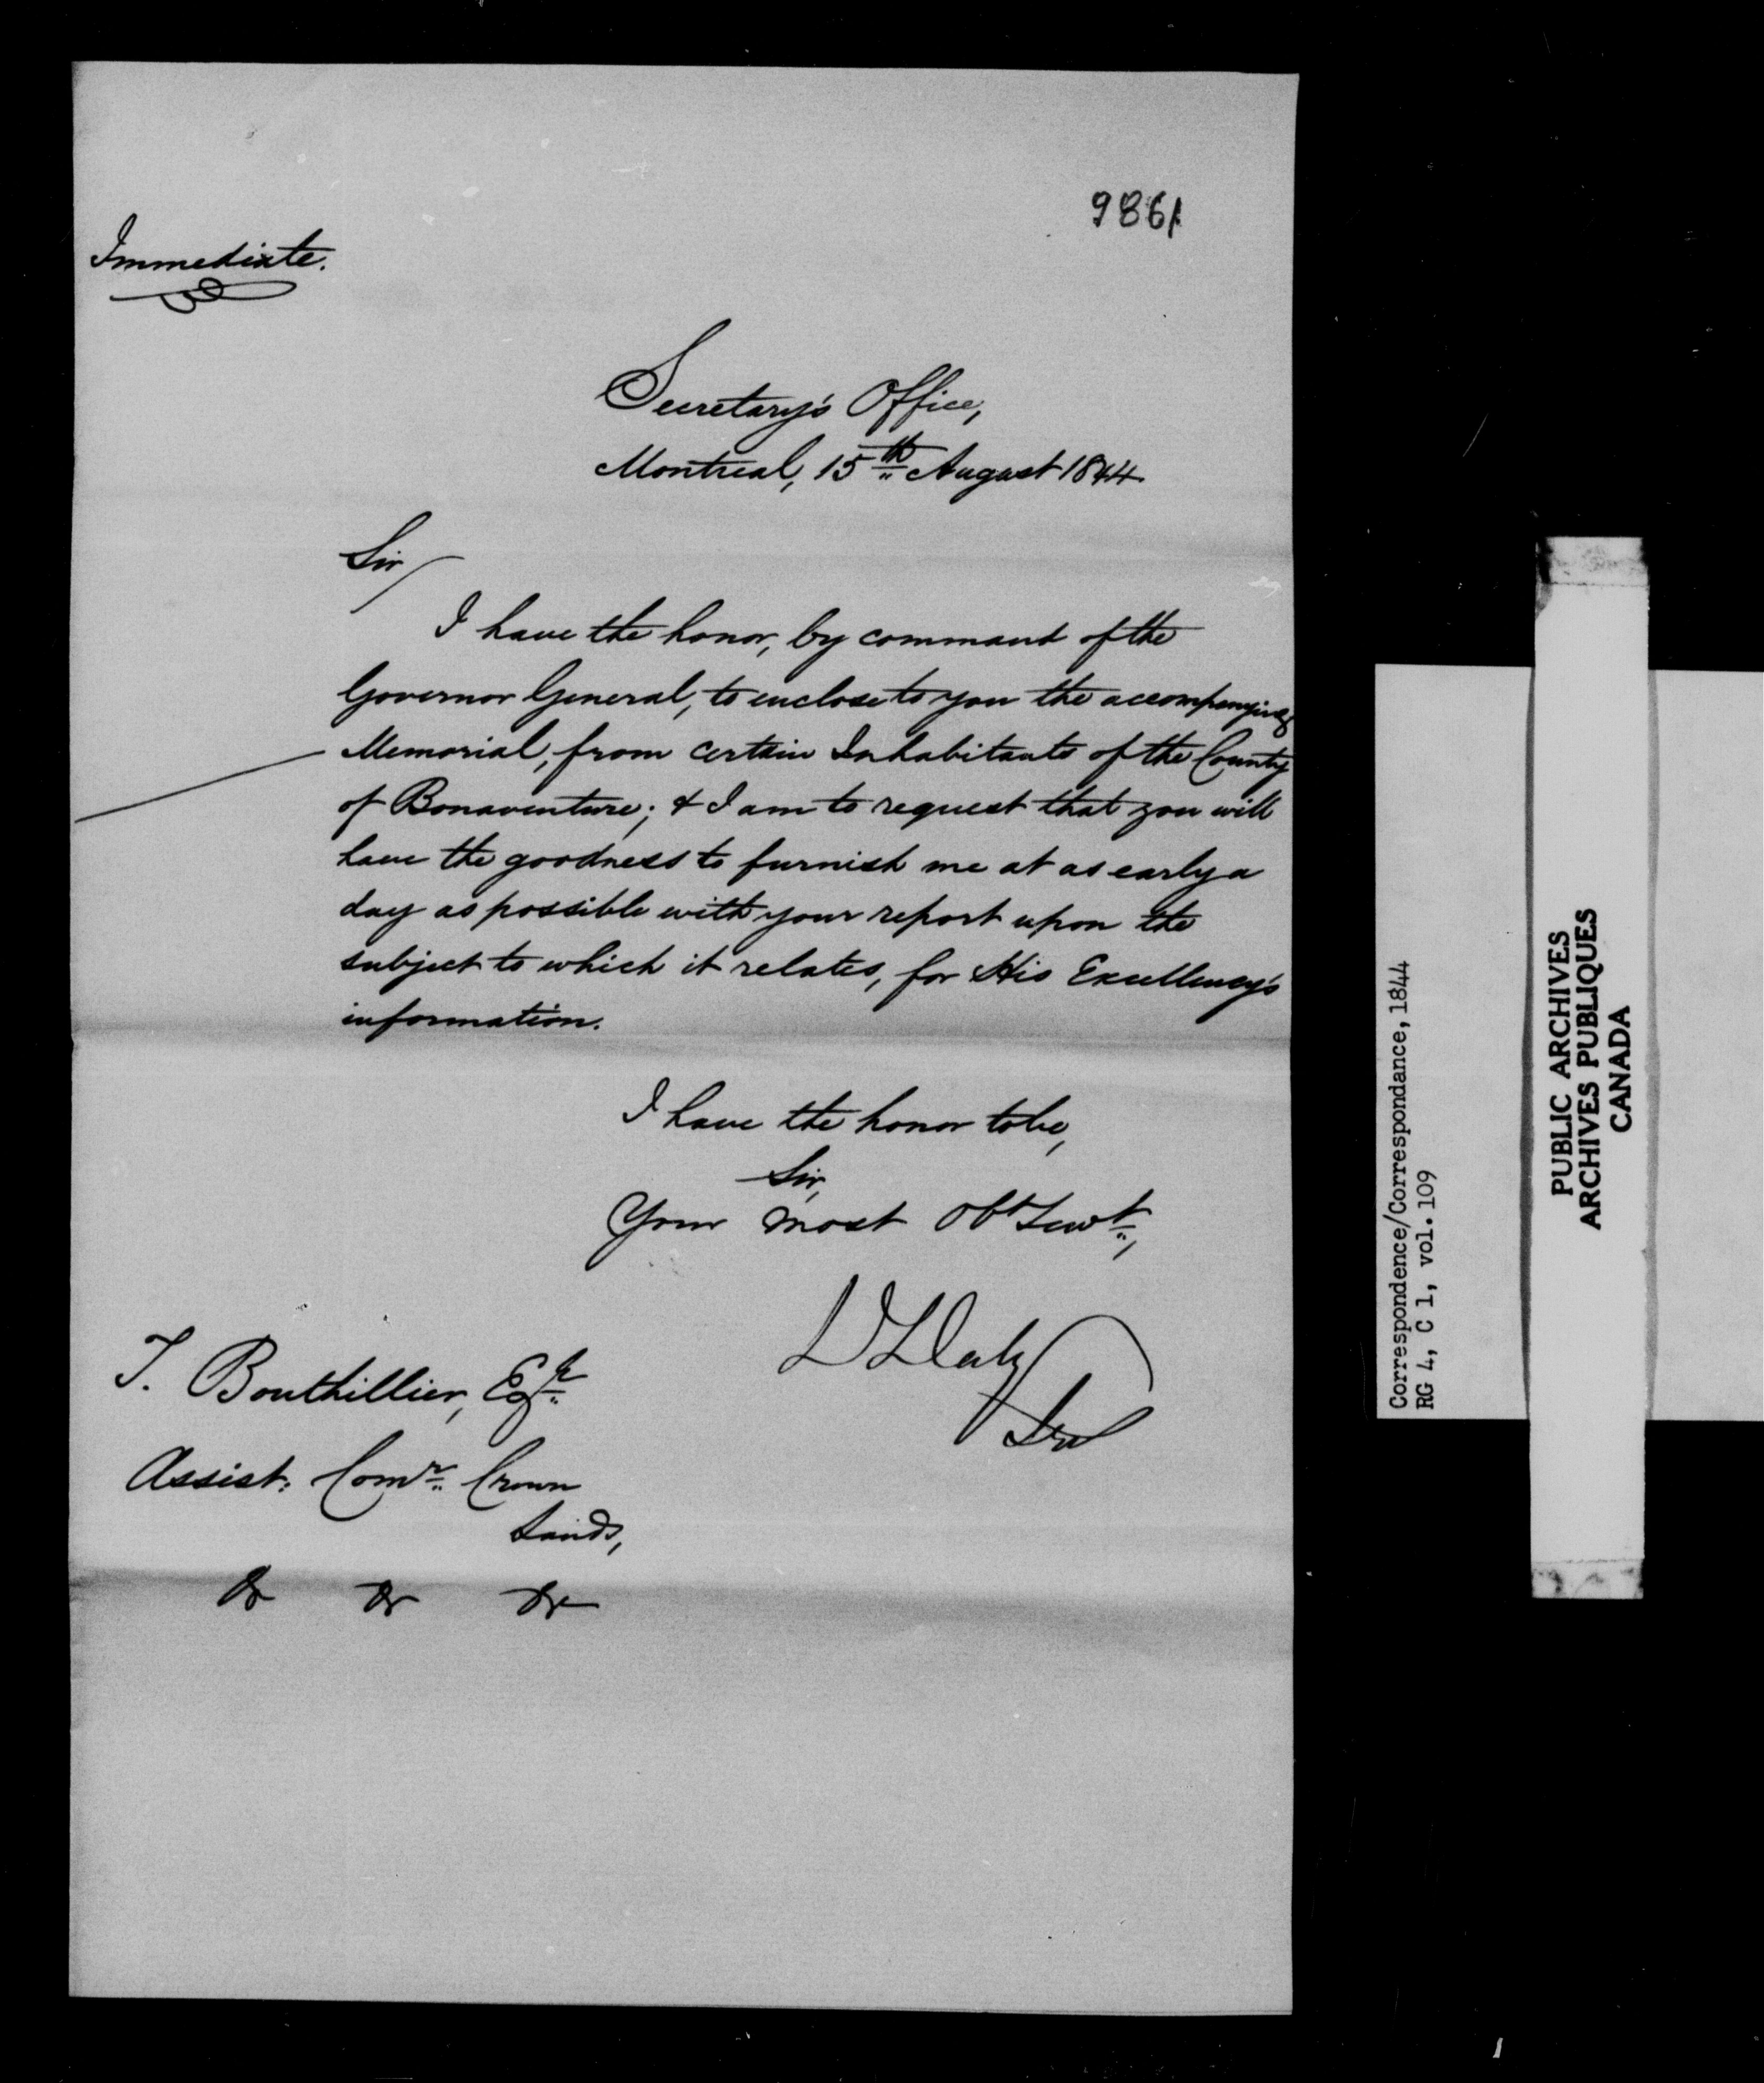 9861
Immediate.
Secretary's Office,
Montreal, 15th August 1844.
Sir
I have the honor, by command of the
Governor General, to enclose to you the accompanying
Memorial, from certain Inhabitants of the County
of Bonaventure; & I am to request that you will
have the goodness to furnish me at as early a
day as possible with your report upon the
subject to which it relates, for His Excellency's
information.
I have the honor to be,
Sir,
Your most Obt Servt,
D Daly
Secy
T. Bouthillier, Esqr.
Assist: Comr. Crown
Lands,
&c &c &c
Correspondence/Correspondance, 1844
RG 4, C 1, vol. 109
PUBLIC ARCHIVES
ARCHIVES PUBLIQUES
CANADA